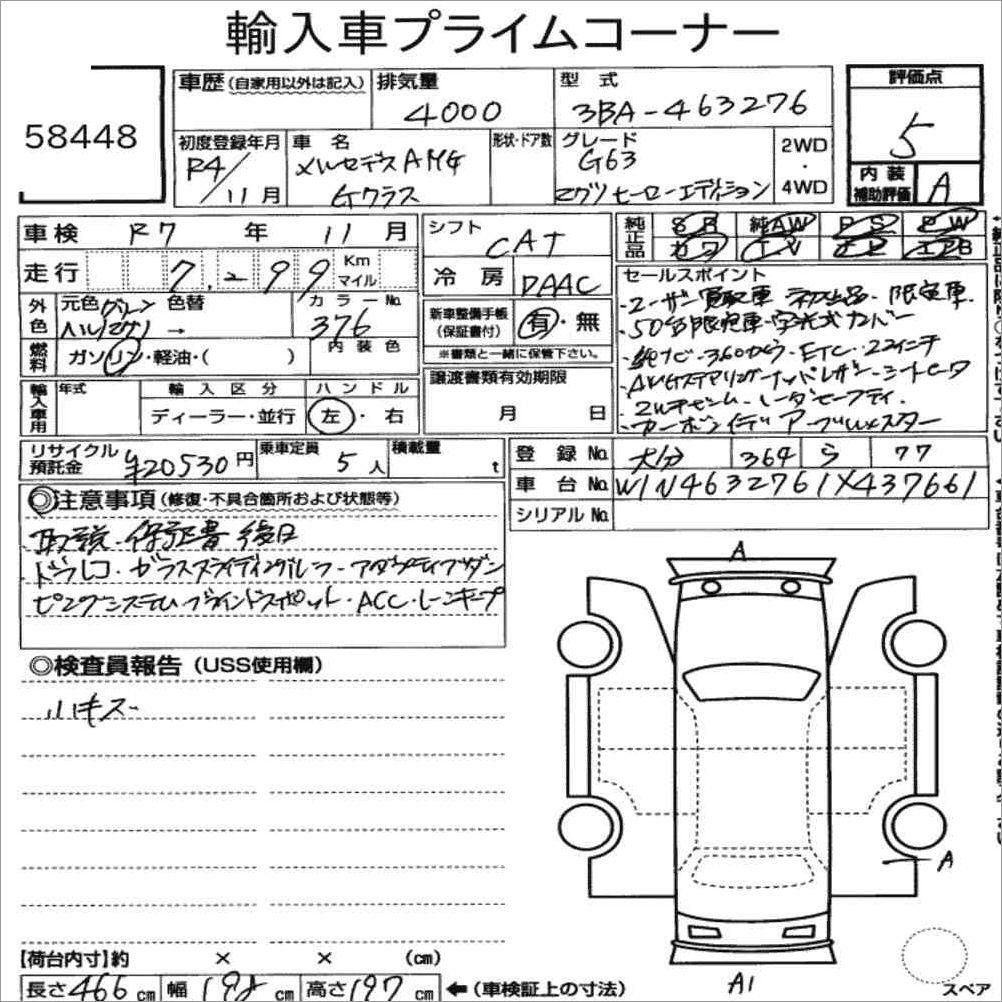 輸入車プライムコーナー
58448
車歴 (自家用以外は記入)
排気量
4000
型式
3BA-463276
評価点
5
初度登録年月
R4/11月
車名
メルセデスAMG
Gクラス
形状・ドア数
グレード
G63
マグノヒーローエディション
2WD
・
4WD
内装
補助評価
A
車検 R7年 11月
シフト
CAT
純正品
SR 純AW PS PW
カワ TV
走行 7,299 Km
マイル
冷房
DAAC
セールスポイント
・ユーザー買取車・初出品・限定車
・50台限定車・
・純ナビ・360カメラ・ETC・22インチ
・AMGステアリング・ナッパレザー・シートヒータ
・マルチビーム・レーダセーフティ
外色
元色 グレー
色替
→
カラーNo.
376
新車整備手帳
(保証書付)
有・無
※書類と一緒に保管下さい。
燃料
ガソリン・軽油・( )
内装色
輸入車用
年式
輸入区分
ディーラー・並行
ハンドル
左・右
譲渡書類有効期限
月 日
リサイクル
預託金
¥20530円
乗車定員
5人
積載量
t
登録No.
大分 364 ら 77
車台No.
W1N4632761X437661
シリアルNo.
◎注意事項 (修復・不具合箇所および状態等)
取説・保証書後日
ドラレコ・ガラススライディングルーフ・アダプティブダン
ピングシステム・ブラインドスポット・ACC・レーンキープ
◎検査員報告 (USS使用欄)
小キズ
A
A
A1
スペア
【荷台内寸】約 × × (cm)
長さ466cm 幅198cm 高さ197cm ←(車検証上の寸法)